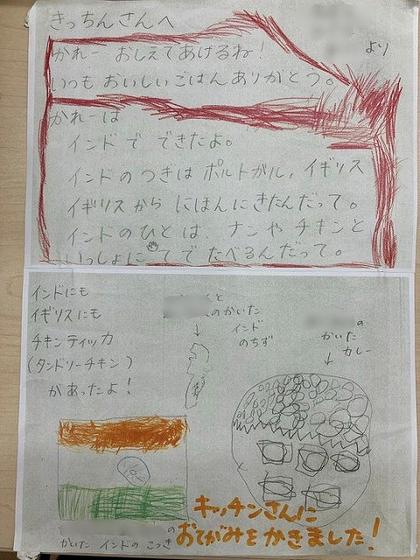 きっちんさんへ
より
かれー おしえてあげるね!
いつも おいしいごはんありがとう。
かれーは
インドで できたよ。
インドの つぎは ポルトガル, イギリス
イギリスから にほんに きたんだって。
インドのひとは、ナンやチキンと
いっしょに てで たべるんだって。
インドにも
イギリスにも
チキンティッカ
(タンドリーチキン)
があったよ!
と
のかいた
インド
のちず
の
かいた
カレー
の
かいた インドの こっき
キッチンさんに
おてがみをかきました!